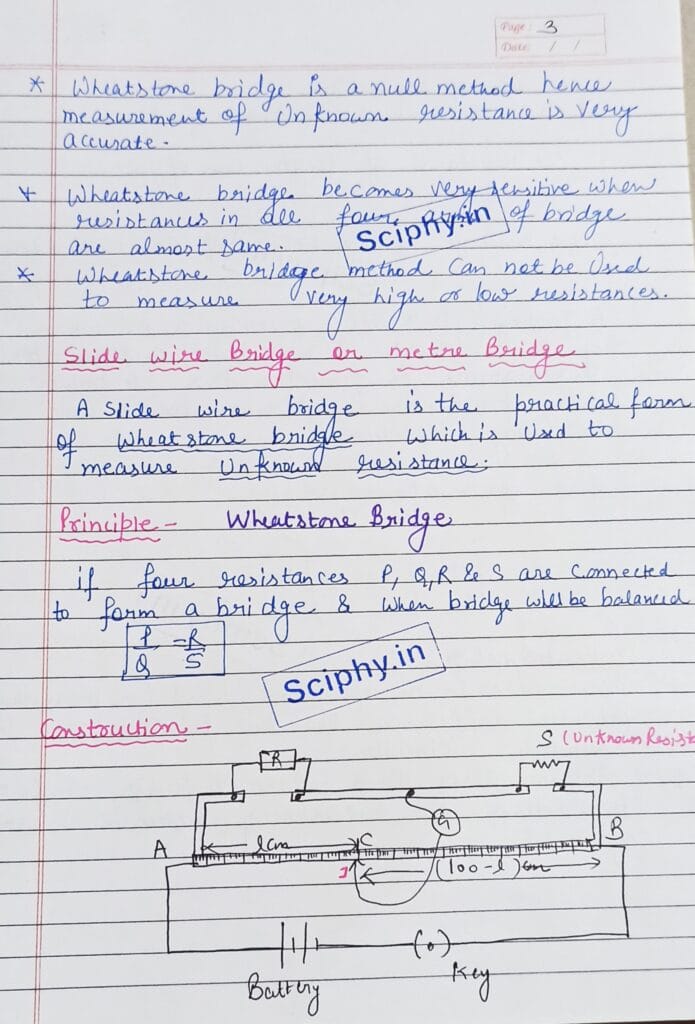 Page 3
Date / /
* Wheatstone bridge is a null method hence
measurement of Unknown resistance is very
accurate.
* Wheatstone bridge becomes very sensitive when
resistances in all four of bridge
Sciphy.in
are almost same.
* Wheatstone bridge method Can not be Used
to measure very high or low resistances.
Slide wire Bridge or metre Bridge
A Slide wire bridge is the practical form
of Wheatstone bridge Which is Used to
measure Unknown resistance.
Principle - Wheatstone Bridge
if four resistances P, Q, R & S are Connected
to form a bridge & When bridge will be balanced
P/Q = R/S
Sciphy.in
Construction -
S (Unknown Resist
R
G
A l cm C B
J (100-l) cm
Battery Key